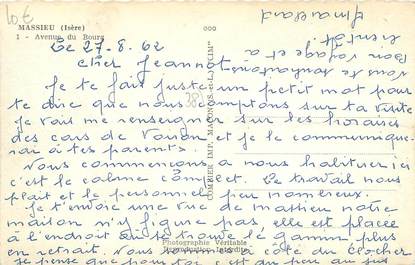 10€
MASSIEU (Isère)
1 - Avenue du Bourg
Le 27-8-62
Cher Jeannot
Je te fais juste un petit mot pour
te dire que nous comptons sur ta visite
je vais me renseigner sur les horaires
des cars de Voiron et je le communique-
rai à tes parents.
Nous commençons à nous habituer ici
c'est le calme complet. Le travail nous
plait et le personnel peu nombreux.
Je t'envoie une vue de Massieu notre
maison n'y figure pas, elle est placée
à l'endroit où se trouve le gamin plus
en retrait. Nous à côté du clocher
Je pense que
Bon voyage et à
bientôt
COMBIER IMP. MACON
Photographie Véritable
Reproduction Interdite